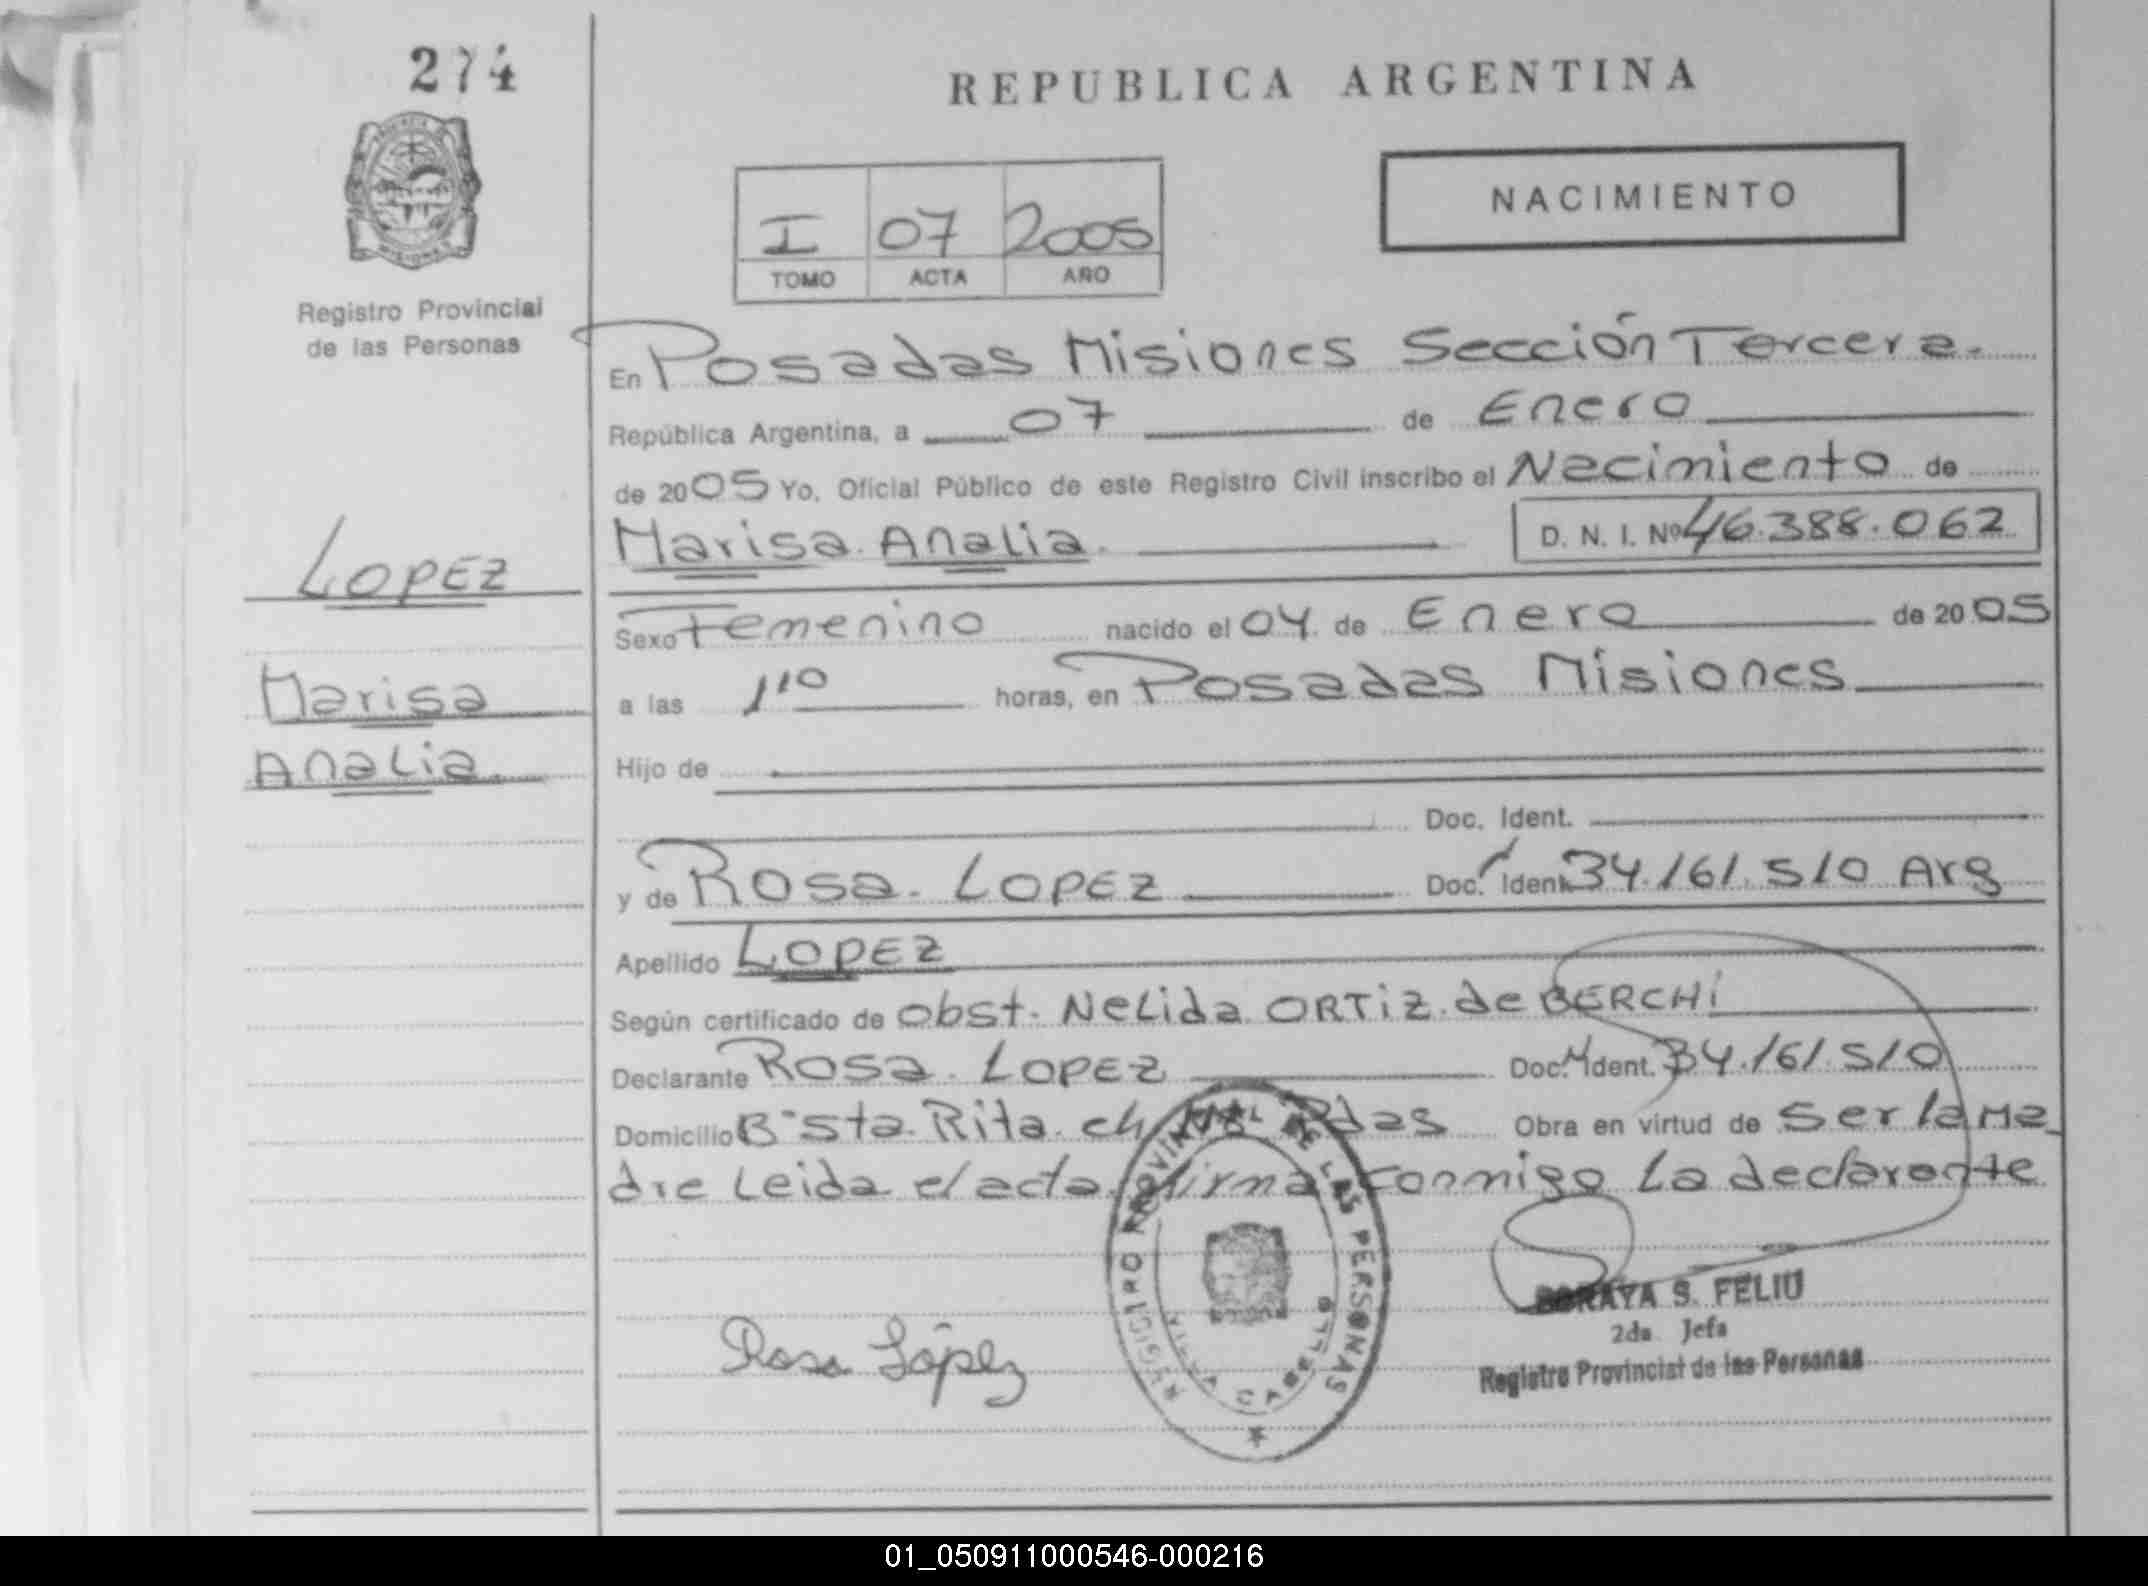 274
REPUBLICA ARGENTINA
NACIMIENTO
I 07 2005
TOMO ACTA AÑO
PROVINCIA DE MISIONES
Registro Provincial
de las Personas
En Posadas Misiones Sección Tercera.
República Argentina, a 07 de Enero
de 2005 Yo, Oficial Público de este Registro Civil inscribo el Nacimiento de
Marisa Analia. D. N. I. Nº 46.388.062
LOPEZ
Sexo Femenino nacido el 04 de Enero de 2005
Marisa
a las 1 10 horas, en Posadas Misiones
Analia
Hijo de
Doc. Ident.
y de Rosa LOPEZ Doc. Ident. 34.161.510 Arg
Apellido LOPEZ
Según certificado de obst. Nelida ORTIZ de BERCHI
Declarante Rosa LOPEZ Doc. Ident. 34.161.510
Domicilio Bº Sta. Rita ch Pdas Obra en virtud de Ser la Ma_
dre Leida el acta firma conmigo la declarante
REGISTRO PROVINCIAL DE LAS PERSONAS
VILLA CABELLO
Rosa López
SORAYA S. FELIU
2da Jefa
Registro Provincial de las Personas
01_050911000546-000216